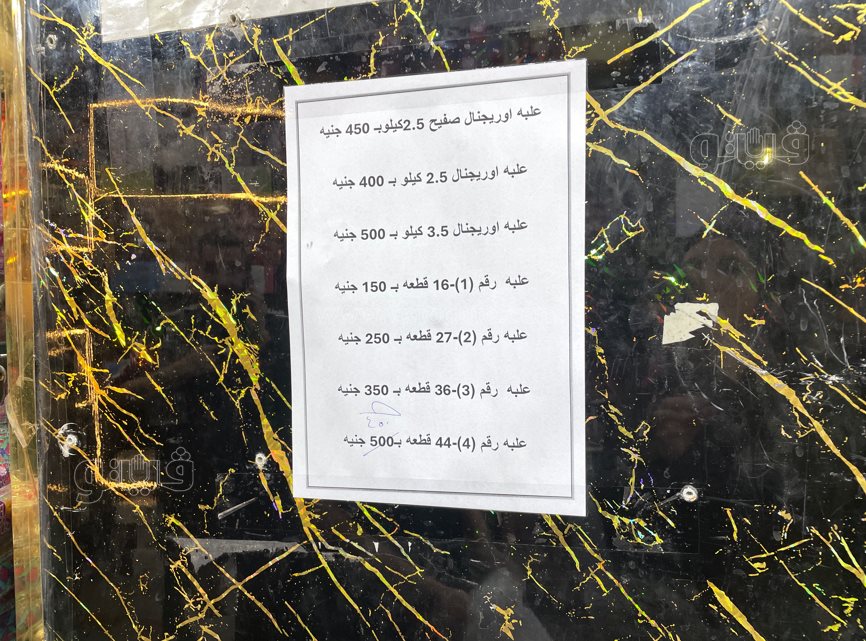 علبه اوريجنال صفيح 2.5كيلوبـ 450 جنيه
علبه اوريجنال 2.5 كيلو بـ 400 جنيه
علبه اوريجنال 3.5 كيلو بـ 500 جنيه
علبه رقم (1)-16 قطعه بـ 150 جنيه
علبه رقم (2)-27 قطعه بـ 250 جنيه
علبه رقم (3)-36 قطعه بـ 350 جنيه
٤٥٠
علبه رقم (4)-44 قطعه بـ500 جنيه